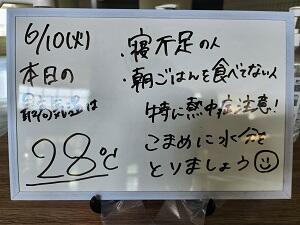 6/10(火)
本日の
最高気温は
28℃
・寝不足の人
・朝ごはんを食べてない人
特に熱中症注意!
こまめに水分を
とりましょう